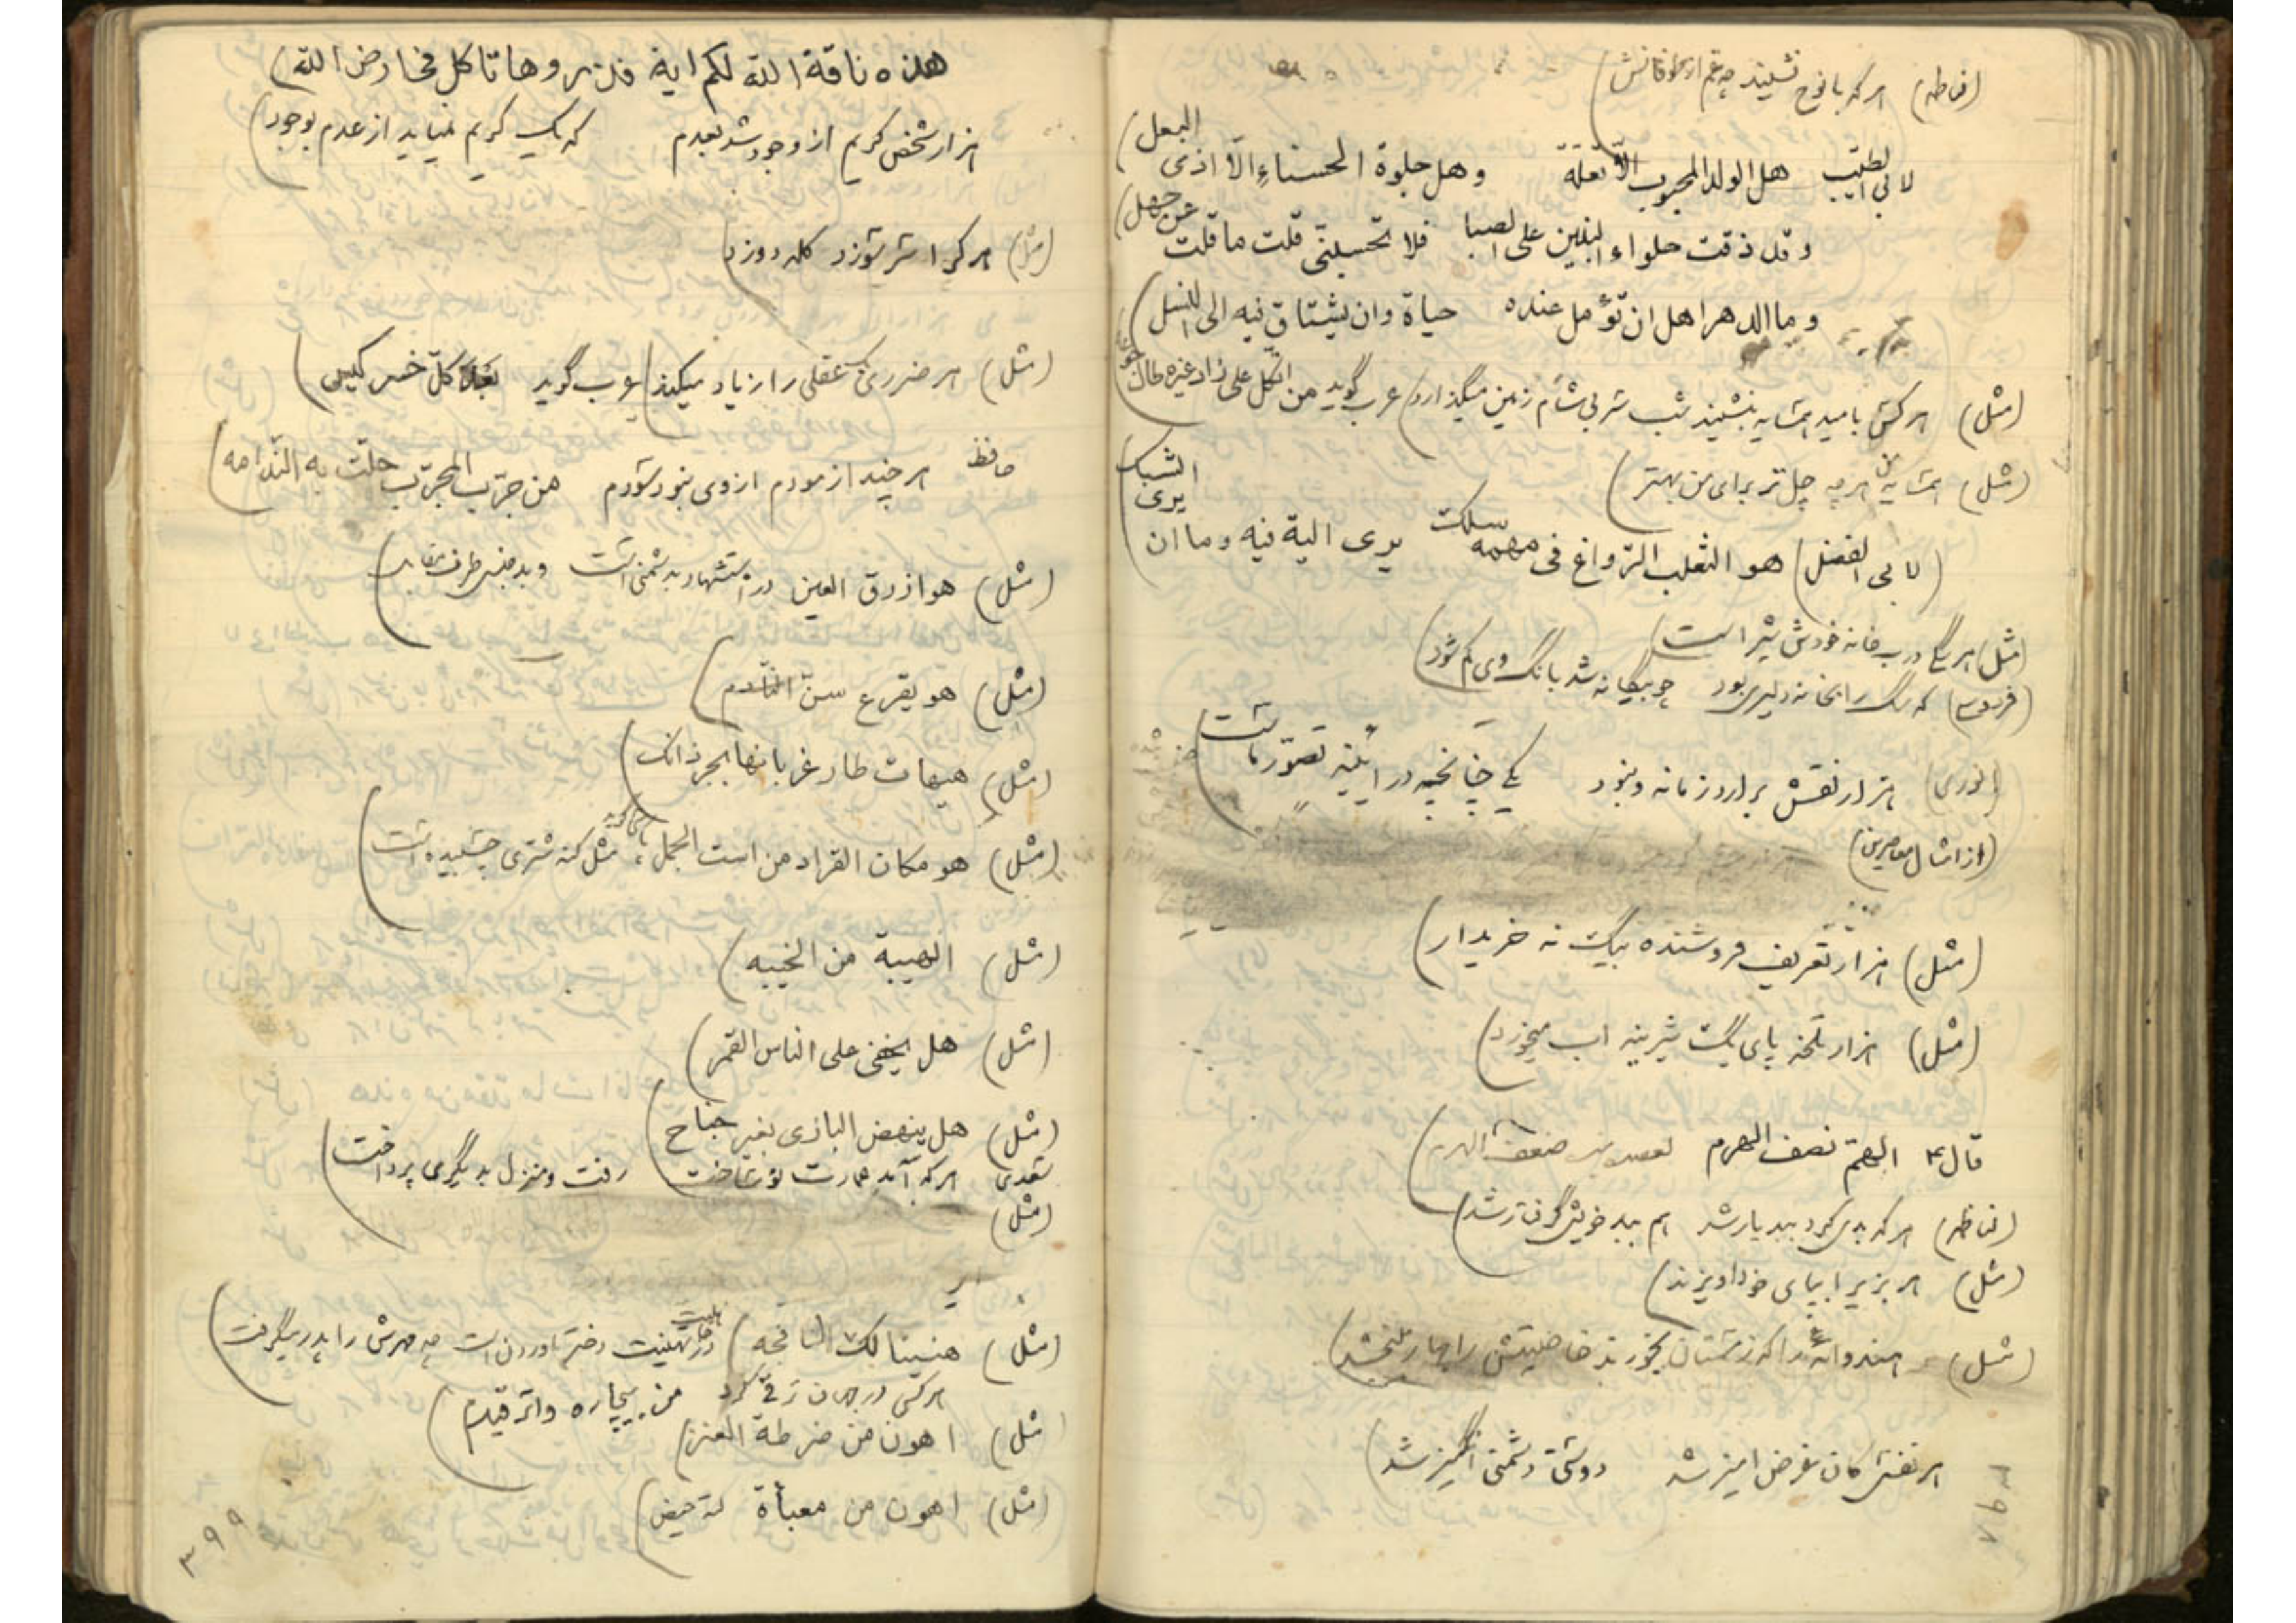 (لناظم) هر که با نوح نشیند چه غم از طوفانش)
لابی الطیب هل الولد المحبوب الّا تعلة وهل جلوة الحسناءِ الّا اذی البعل)
وقد ذقت حلواء البنین علی الصبا فلا تحسبنّی قلت ما قلت عن جهل)
وما الدهر اهل ان تؤمل عنده حیاة وان یشتاق فیه الی النسل)
(مثل) هر کس بامید همسایه بنشیند شب سر بی شام زمین میگذارد) عرب گوید من اتّکل علی زاد غیره طال جوعه)
(مثل) همسایه من هر چه چل تر برای من بهتر)
(لابی الفضل) هو الثعلب الرّواغ فی مهمه سلکت یری الیة فیه وما ان یری الشبک
(مثل) هر سگی درب خانه خودش شیر است)
(فردوسی) که سگ را بخانه دلیری بود چو بیگانه شد بانگ وی کم شود)
(انوری) هزار نقش برآرد زمانه و نبود یکی چنانچه در آیینه تصوّر ماست)
(از امثال معاصرین)
(مثل) هزار تعریف فروشنده بیک نه خریدار)
(مثل) هزار تلخه پای یک شیرینه اب میخورد)
قال ۴ الهمّ نصف الهرم
(لناظم) هر که بدی کرد ببد یار شد هم ببد خویش گرفتار شد)
(مثل) هر بزیرا بپای خود اویزند)
(مثل) هندوانه را که زمستان بخورند خاصیتش را بهار
هر نفسی کان بغرض امیز شد دوستی دشمنی انگیز شد)
۳۹۸
هذه ناقة الله لکم ایة فذروها تاکل فی ارض الله)
هزار شخص کریم از وجود شد بعدم که یک کریم نمیاید از عدم بوجود)
(مثل) هر کرا سر سوزد کله دوزد)
(مثل) هر ضرری عقلی را زیاد میکند) عرب گوید بعد کلّ خسر کیس)
حافظ هر چند ازمودم از وی نبود سودم من جرّب المجرّب حلّت به النّدامه)
(مثل) هو ازرق العین در استشهاد بدشمنی است و بد جنسی طرف مقابل)
(مثل) هو یقرع سنّ النّادم)
(مثل) هیهات طار غربانها بجرذانک)
(مثل) هو مکان القراد من است الجمل مثل کنه شتری چسبیده است)
(مثل) الهیبة من الخیبه)
(مثل) هل یخفی علی الناس القمر)
(مثل) هل ینهض البازی بغیر جناح)
سعدی هر که آمد عمارت نو ساخت رفت و منزل بدیگری پرداخت)
(مثل)
(مثل) هنیئا لک النافجه) در تهنیت دختر اوردن است چه مهرش را پدر میگرفت)
هر کسی در جهان ترقی کرد من بیچاره واترقیدم)
(مثل) اهون من ضرطة العنز)
(مثل) اهون من معبأة حیض)
۳۹۹